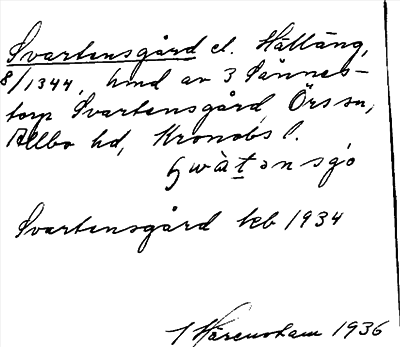 Svartensgård el. Hälläng,
8/1344, hmd av 3 Sännes-
torp Svartensgård, Örs sn,
Allbo hd, Kronobs l.
Svartensgård keb 1934
1936